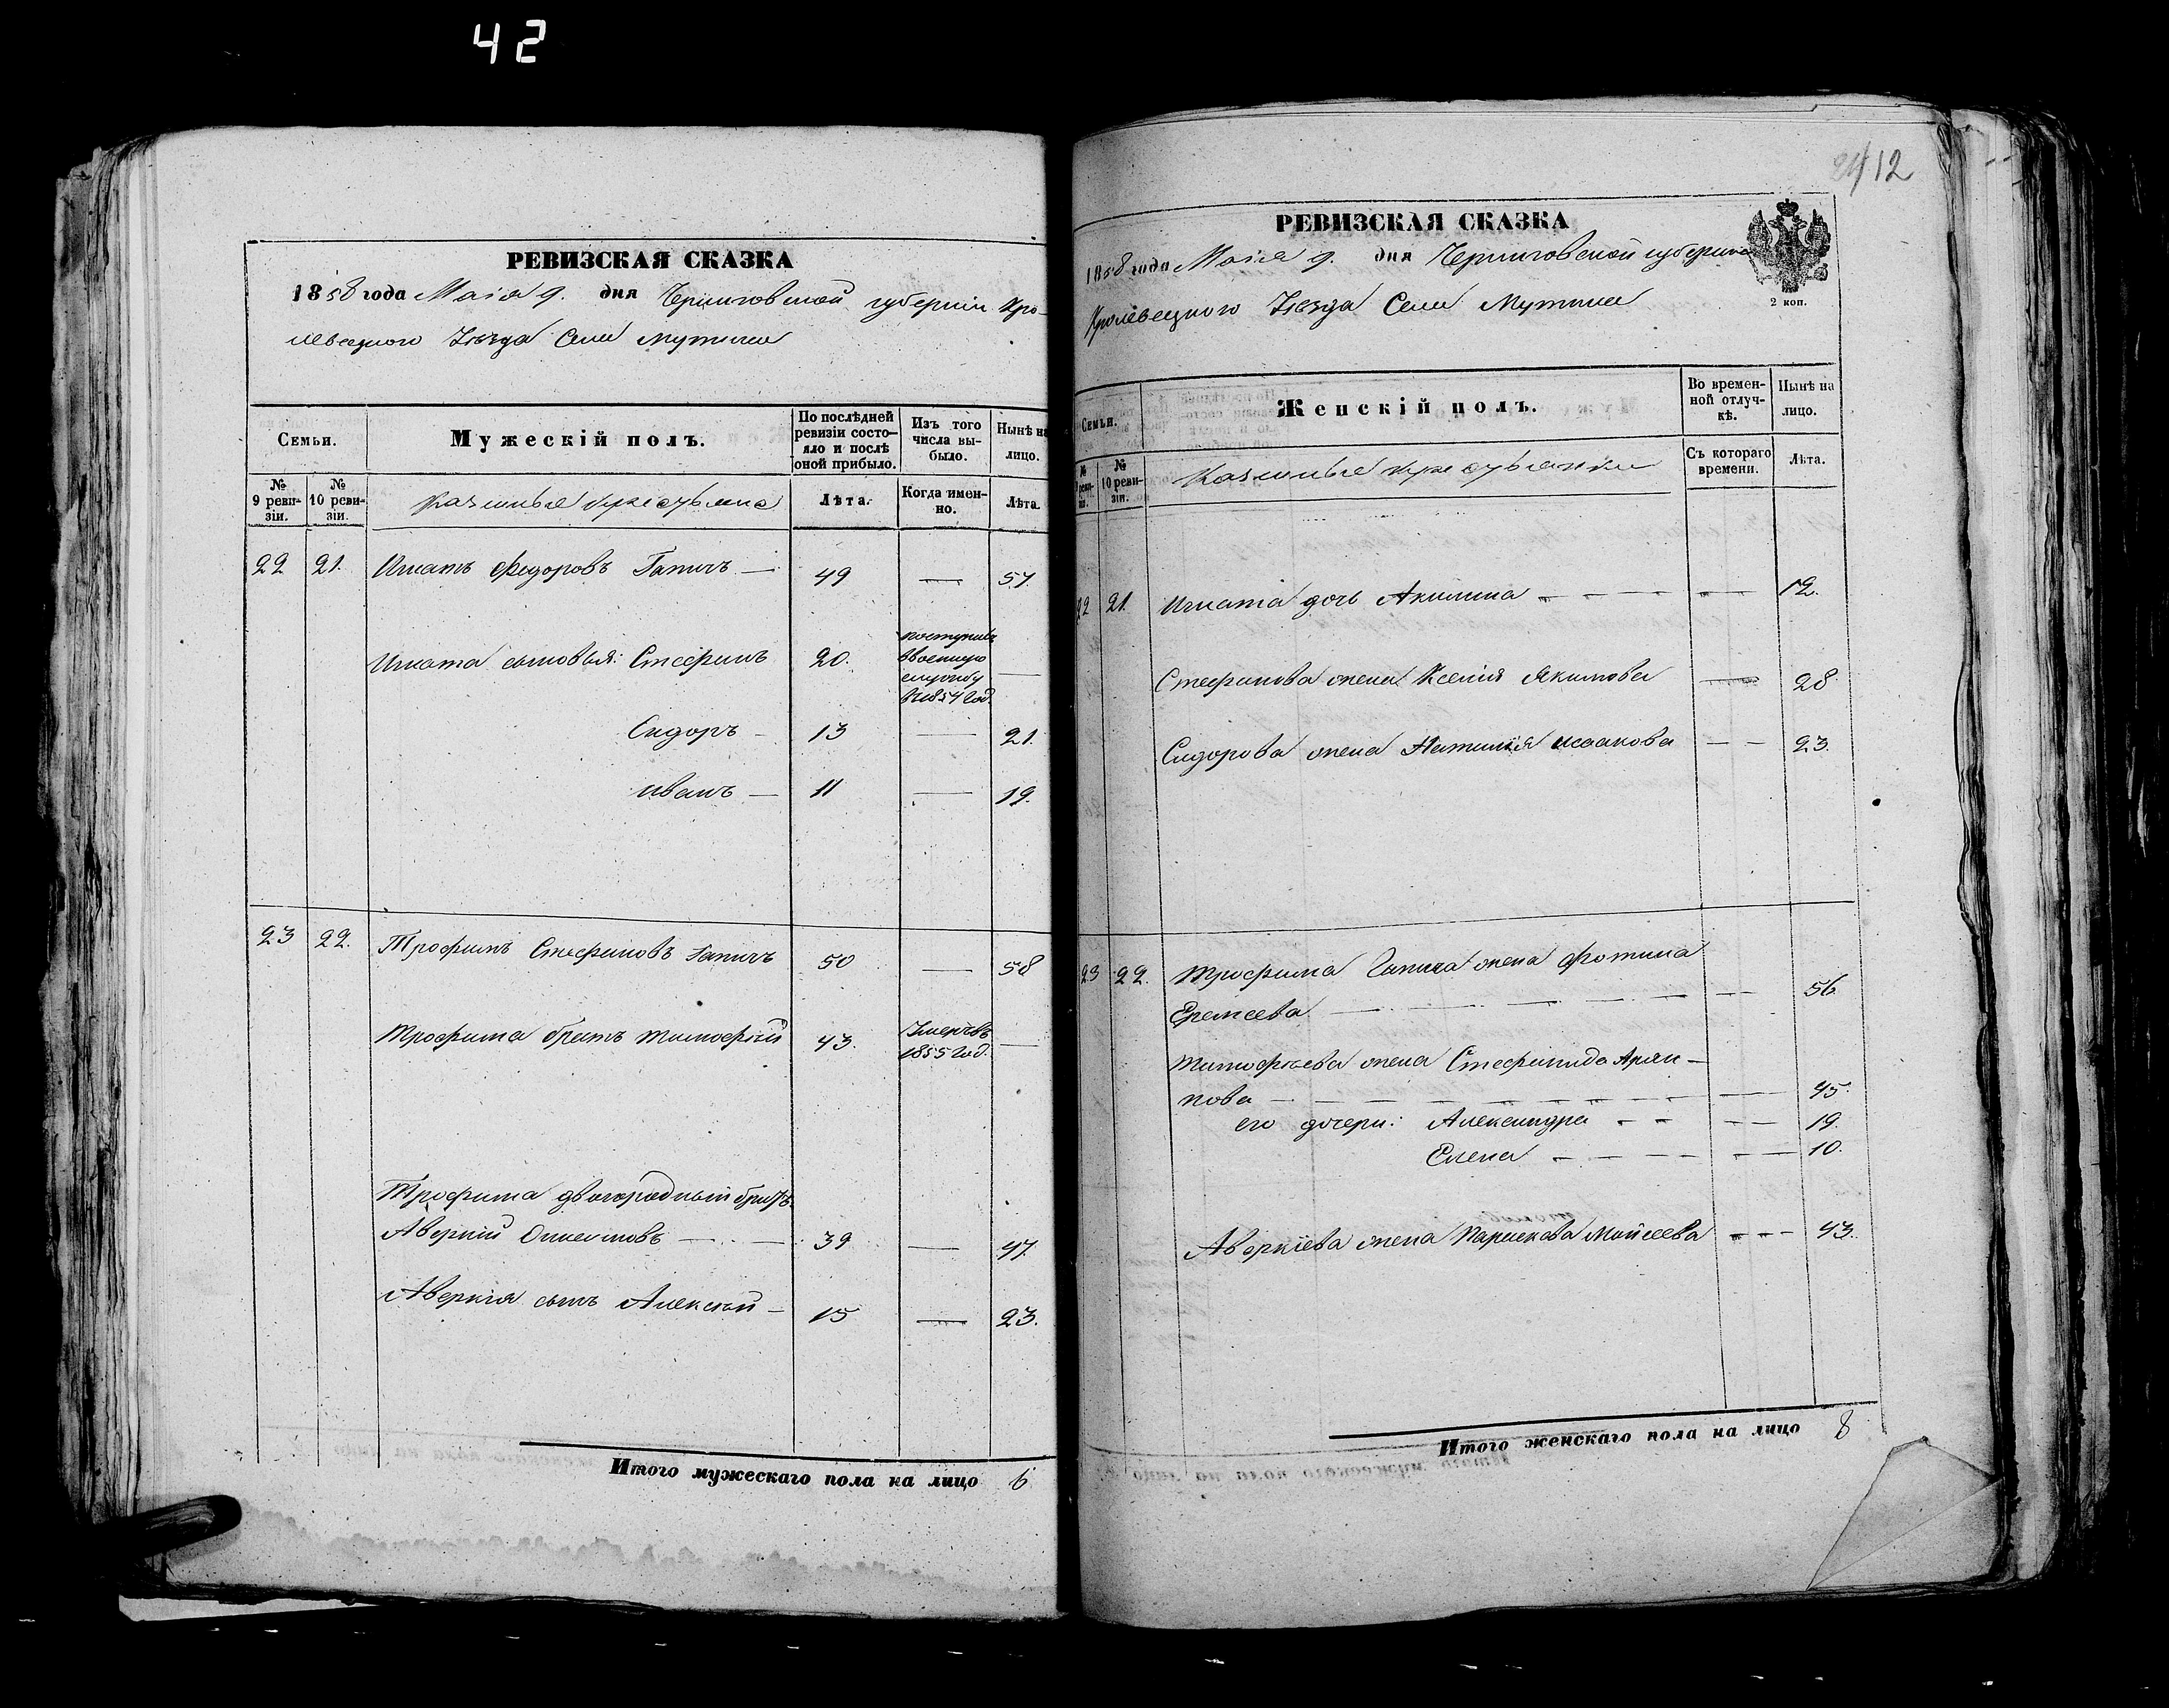 42
РЕВИЗСКАЯ СКАЗКА
1858 года Маія 9. дня Черниговской губерніи Кро-
левецкого Уѣзда Села Мутина
Семьи.
Мужескій полъ.
По послѣдней ревизіи состо-
яло и послѣ оной прибыло.
Изъ того числа вы-
было.
Нынѣ на лицо.
№ 9 реви-
зіи.
№ 10 реви-
зіи.
Казенные крестьяне
Лѣта.
Когда имен-
но.
Лѣта.
22 21. Игнатъ Федоровъ Гапичъ — 49 — 57.
Игната сыновья: Стефанъ 20. поступилъ
ввоенную
службу
в 1854 год. —
Сидоръ — 13 — 21.
Иванъ — 11 — 19.
23 22. Трофимъ Стефановъ Гапичъ 50 — 58
Трофима братъ Тимофѣй 43. Умеръ въ
1855 год. —
Трофима двоюродный братъ
Аверкій — 39 — 47.
Аверкія сынъ Алексѣй — 15 — 23.
Итого мужескаго пола на лицо 6
12
РЕВИЗСКАЯ СКАЗКА
1858 года Маія 9. дня Черниговской губерніи
Кролевецкого Уѣзда Села Мутина
2 коп.
Семьи.
Женскій полъ.
Во времен-
ной отлуч-
кѣ.
Нынѣ на лицо.
№ 9 реви-
зіи.
№ 10 реви-
зіи.
Казенные крестьянки
Съ котораго времени.
Лѣта.
22 21. Игната дочь Акилина — — 12.
Стефанова жена Ксенія Якимова — 28.
Сидорова жена Наталія Исаакова — — 23.
23 22. Трофима Гапича жена Фотина
Еремеева — — 56.
Тимофѣева жена Стефанида Архи-
пова — — 45.
его дочери: Александра — — 19.
Елена — — 10.
Аверкіева жена Параскева Мойсеева — — 43.
Итого женскаго пола на лицо 8